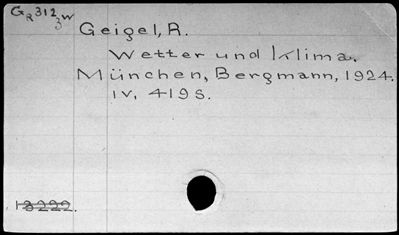 G2312
3w
Geigel, R.
Wetter und Klima.
München, Bergmann, 1924.
IV, 419 S.
18222.